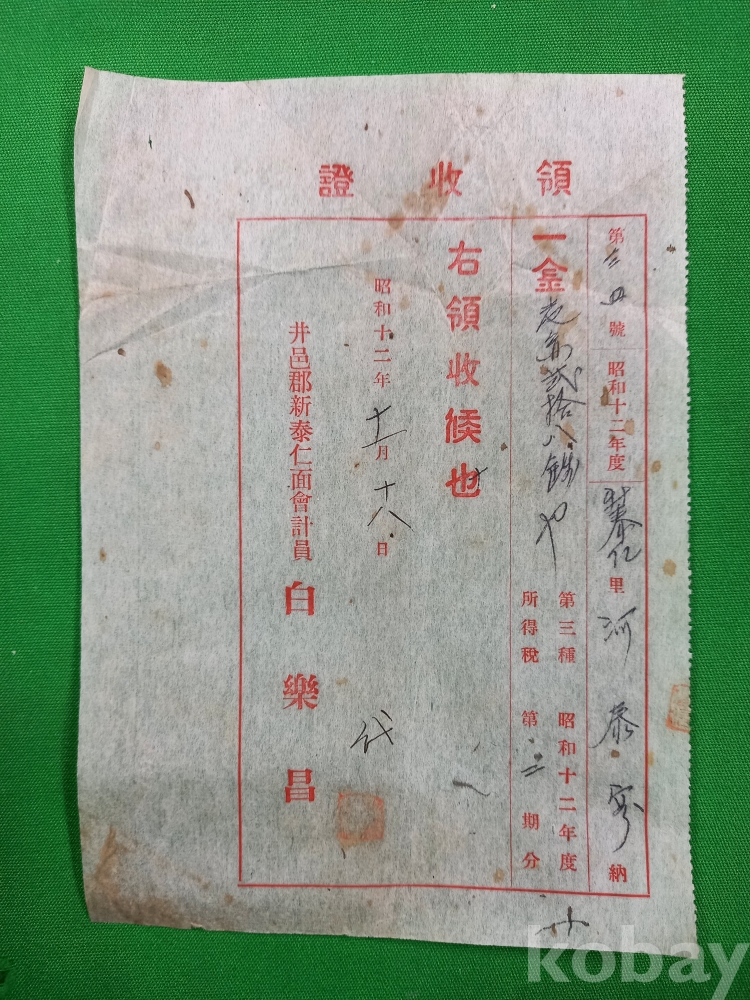 領收證
第三四號 昭和十二年度 泰仁里 河 納
一金 貳拾八錢也 第三種所得稅 昭和十二年度第二期分
右領收候也
昭和十二年十一月十八日
井邑郡新泰仁面會計員 白樂昌
代
kobay